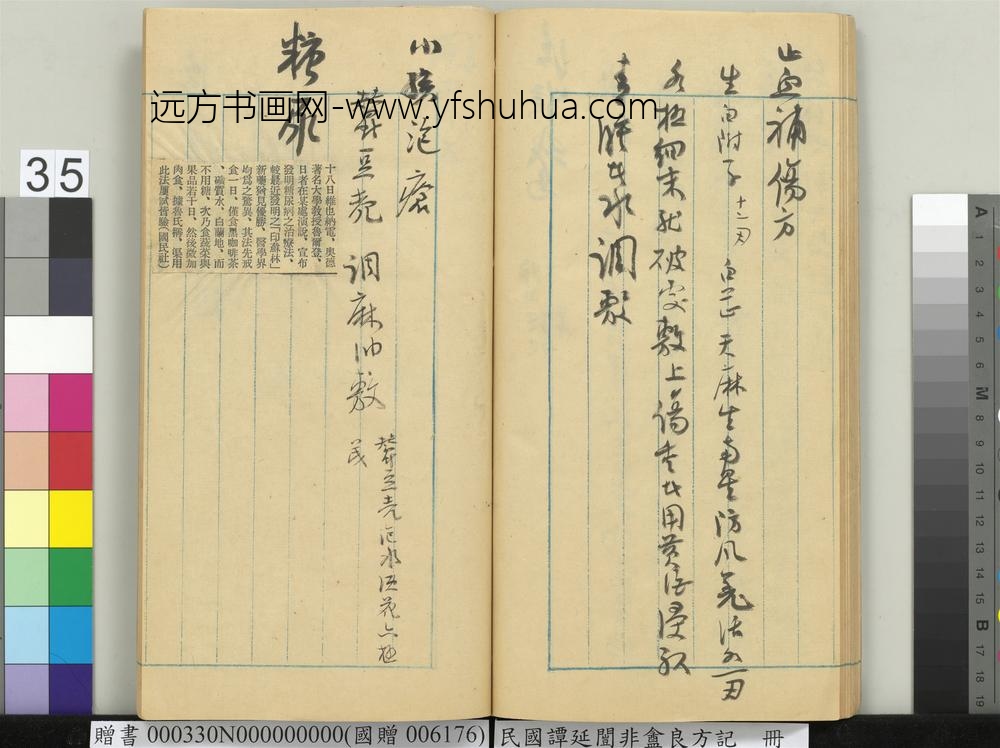 止血補傷方
生白附子 十二两 白芷天麻生南星防风羌活各一两
各極細末就破處敷上傷重者用黃酒浸服
青腫者水調敷
小孩泡瘡
菉豆壳 调麻油敷
菉豆壳
糖尿
十八日維也納電、奧德
著名大學教授魯爾登、
日者在某處演說、宣布
發明糖尿病之治療法、
較最近發明之「印蘇林」
新藥猶見優勝、醫學界
均爲之驚異、其法先戒
食一日、僅食黑咖啡茶
、礦質水、白蘭地、而
不用糖、次乃食蔬菜與
果品若干日、然後微加
肉食、據魯氏稱、渠用
此法屢試皆驗(國民社)
远方书画网-www.yfshuhua.com
35
贈書 000330N000000000(國贈 006176)
民國譚延闓非盦良方記 冊
A 1 2 3 4 5 6 M 8 9 10 11 12 13 14 15 B 17 18 19